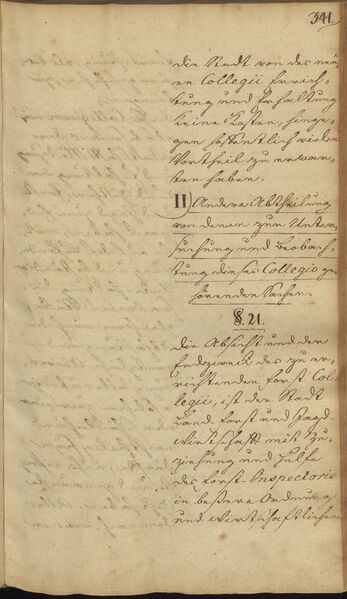 341.
die Stadt von des neu-
en Collegii Errich-
tung und Erhaltung
keine Kosten, hinge-
gen hoffentlich vielen
Vortheil zu erwar-
ten haben.
II) Andere Abtheilung
von denen zur Unter-
suchung und Beobach-
tung dieses Collegio ge-
hörenden Sachen.
§. 21.
Die Absicht und der
Endzweck des zu er-
richtenden Forst Col-
legii, ist der Stadt
Land Forst und Jagd
Wirthschafft mit Zu-
ziehung und Hülfe
des Forst-Inspectoris
in beßere Ordnung
und wirthschafftlichern